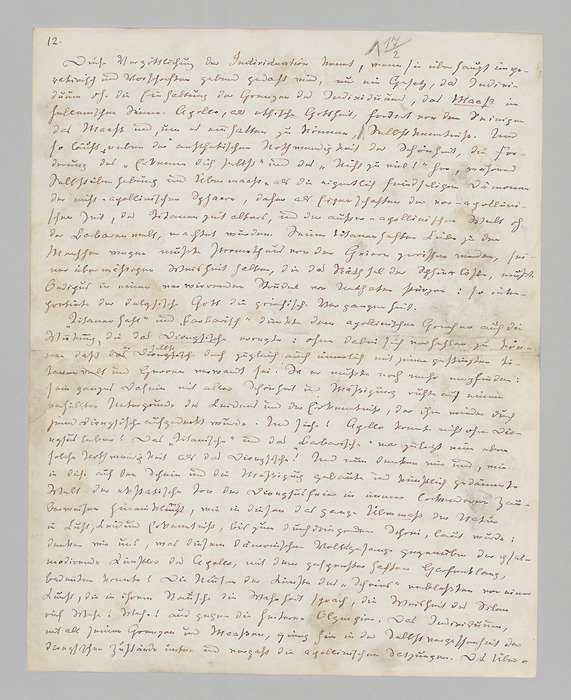 12. 17/2
Diese Vergöttlichung der Individuation kennt, wenn sie überhaupt impe-
rativisch und Vorschriften gebend gedacht wird, nur ein Gesetz, das Indivi-
duum dh. die Einhaltung der Grenzen des Individuums, das Maaß im
hellenischen Sinne. Apollo, als ethische Gottheit, fordert von den Seinigen
das Maaß und, um es einhalten zu können, Selbsterkenntniß. Und
so läuft neben der aesthetischen Nothwendigkeit der Schönheit, die For-
derung des „Erkenne dich selbst" und des „Nicht zu viel!" her, während
Selbstüberhebung und Übermaaß als die eigentlich feindseligen Dämonen
der nicht-apollinischen Sphaere, daher als Eigenschaften der vor-apollini-
schen Zeit, des Titanenzeitalters, und der ausser-apollinischen Welt dh
der Barbarenwelt, erachtet wurden. Seiner titanenhaften Liebe zu den
Menschen wegen mußte Prometheus von den Geiern zerrissen werden, sei-
ner übermässigen Weisheit halber, die das Räthsel der Sphinx löste, mußte
Oedipus in einen verwirrenden Strudel von Unthaten stürzen: so inter-
pretirte der delphische Gott die griechische Vergangenheit.
„Titanenhaft" und „barbarisch" dünkte dem apollinischen Griechen auch die
Wirkung, die das Dionysische erregte: ohne dabei sich verhehlen zu kön-
nen, daß er selbst doch zugleich auch innerlich mit jenen gestürzten Ti-
tanen und Heroen verwandt sei. Ja er mußte noch mehr empfinden:
sein ganzes Dasein mit aller Schönheit und Mässigung ruhte auf einem
verhüllten Untergrunde des Leidens und der Erkenntniß, der ihm wieder durch
jenes Dionysische aufgedeckt wurde. Und siehe! Apollo konnte nicht ohne Dio-
nysus leben! Das „Titanische" und das „Barbarische" war zuletzt eine eben
solche Nothwendigkeit als das Dionysische! Und nun denken wir uns, wie
in diese auf den Schein und die Mässigung gebaute und künstlich gedämmte
Welt der ekstatische Ton der Dionysusfeier in immer lockenderen Zau-
berweisen hineinklang, wie in diesen das ganze Übermaaß der Natur
in Lust, Leid und Erkenntniß, bis zum durchdringenden Schrei, laut wurde:
denken wir uns, was diesem dämonischen Volksgesange gegenüber der psal-
modirende Künstler des Apollo, mit dem gespensterhaften Harfenklang,
bedeuten konnte! Die Musen der Künste des „Scheins" verblaßten vor einer
Kunst, die in ihrem Rausche die Wahrheit sprach, die Weisheit des Silen
rief Wehe! Wehe! aus gegen die heiteren Olympier. Das Individuum,
mit all seinen Grenzen und Maaßen, gieng hier in der Selbstvergessenheit der
dionysischen Zustände unter und vergaß die apollinischen Satzungen. Das Über-